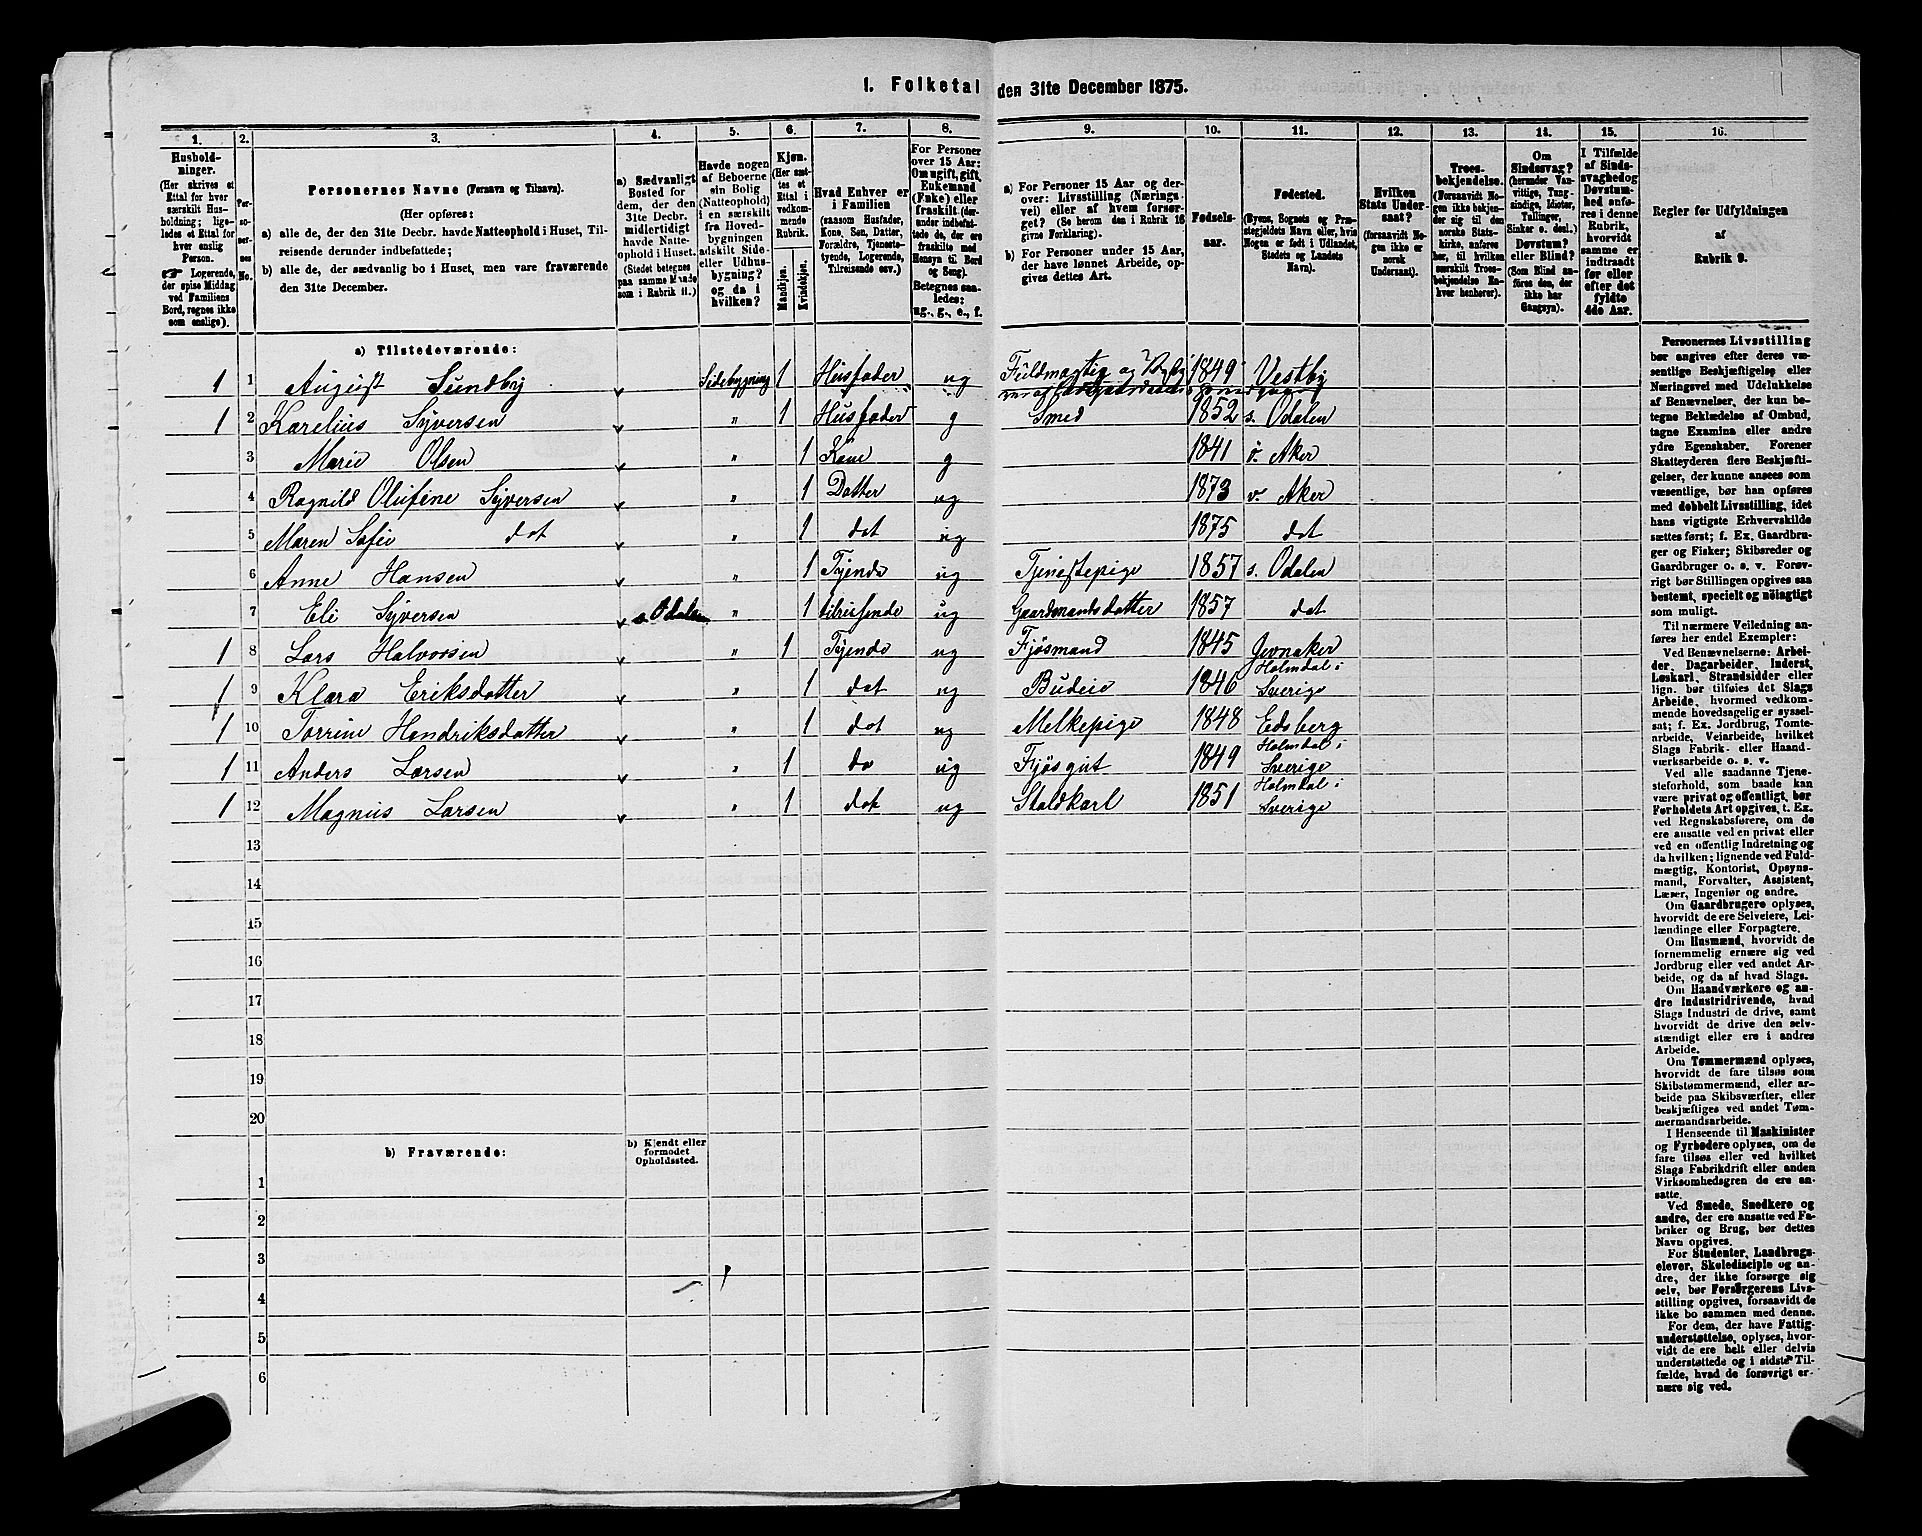 1. Folketal den 31te December 1875.
1. 2. 3. 4. 5. 6. 7. 8. 9. 10. 11. 12. 13. 14. 15. 16.
Hushold-
ninger.
(Her skrives et
Ettal for hver
særskilt Hus-
holdning; lige-
ledes et Ettal for
hver enslig
Person.
☞ Logerende,
der spise Middag
ved Familiens
Bord, regnes ikke
som enslige).
Per-
so-
ner-
nes
No.
Personernes Navne (Fornavn og Tilnavn).
(Her opføres:
a) alle de, der den 31te Decbr. havde Natteophold i Huset, Til-
reisende derunder indbefattede;
b) alle de, der sædvanlig bo i Huset, men vare fraværende
den 31te December.
a) Sædvanligt
Bosted for
dem, der den
31te Decbr.
midlertidigt
havde Natte-
ophold i Huset.
(Stedet betegnes
paa samme Maade
som i Rubrik 11.)
Havde nogen
af Beboerne
sin Bolig
(Natteophold)
i en særskilt
fra Hoved-
bygningen
adskilt Side-
eller Udhus-
bygning?
og da i
hvilken?
Kjøn.
(Her sæt-
tes et
Ettal i
vedkom-
mende
Rubrik.)
Mandkjøn.
Kvindekjøn.
Hvad Enhver er
i Familien
(saasom Husfader,
Kone, Søn, Datter,
Forældre, Tjeneste-
tyende, Logerende,
Tilreisende osv.)
For Personer
over 15 Aar:
Om ugift, gift,
Enkemand
(Enke) eller
fraskilt (der-
under indbefat-
tede de, der ere
fraskilte med
Hensyn til Bord
og Seng).
Betegnes saa-
ledes:
ug., g., e., f.
a) For Personer 15 Aar og der-
over: Livsstilling (Nærings-
vei) eller af hvem forsør-
get? (Se herom den i Rubrik 16
givne Forklaring).
b) For Personer under 15 Aar,
der have lønnet Arbeide, op-
gives dettes Art.
Fødsels-
aar.
Fødested.
(Byens, Sognets og Præ-
stegjeldets Navn eller, hvis
Nogen er født i Udlandet,
Stedets og Landets
Navn).
Hvilken
Stats Under-
saat?
(forsaavidt No-
gen ikke er
norsk
Undersaat).
Troes-
bekjendelse.
(Forsaavidt No-
gen ikke bekjen-
der sig til den
norske Stats-
kirke, anføres
her, til hvilken
særskilt Troes-
bekjendelse En-
hver henhører).
Om
Sindssvag?
(herunder Van-
vittige, Tung-
sindige, Idioter,
Tullinger,
Sinker o. desl.)
Døvstum?
eller Blind?
(Som Blind an-
føres den, der
ikke har
Gangsyn).
I Tilfælde
af Sinds-
svaghed og
Døvstum-
hed anfø-
res i denne
Rubrik,
hvorvidt
samme er
indtraadt
før eller
efter det
fyldte
4de Aar.
Regler for Udfyldningen
af
Rubrik 9.
a) Tilstedeværende:
1 1 August Sundby Sidebygning 1 Husfader ug Fuldmægtig 1849 Vestby
1 2 Karelius Syversen " 1 Husfader g Smed 1852 s. Odalen
3 Marie Olsen " 1 Kone g 1841 ø. Aker
4 Ragnild Olufine Syversen " 1 Datter ug 1873 v. Aker
5 Maren Sofie det " 1 det ug 1875 det
6 Anne Hansen " 1 Tyende ug Tjenestepige 1857 s. Odalen
7 Eli Syversen s. Odalen " 1 tilreisende ug Gaardmandsdatter 1857 det
1 8 Lars Halvorsen " 1 Tyende ug Fjøsmand 1845 Jevnaker
1 9 Klara Eriksdatter " 1 det ug Budeie 1846 Holmdal i Sverige
1 10 Torrine Hendriksdatter " 1 det ug Melkepige 1848 Eidsberg
1 11 Anders Larsen " 1 do ug Fjøsgut 1849 Holmdal i Sverige
1 12 Magnus Larsen " 1 det ug Staldkarl 1851 Holmdal i Sverige
13
14
15
16
17
18
19
20
b) Fraværende:
b) Kjendt eller
formodet
Opholdssted.
1
2
3
4
5
6
Personernes Livsstilling
bør angives efter deres væ-
sentlige Beskjæftigelse eller
Næringsvei med Udelukkelse
af Benævnelser, der kun be-
tegne Beklædelse af Ombud,
tagne Examina eller andre
ydre Egenskaber. Forener
Skatteyderen flere Beskjæfti-
gelser, der kunne ansees som
væsentlige, bør han opføres
med dobbelt Livsstilling, idet
hans vigtigste Erhvervskilde
sættes først; f. Ex. Gaardbru-
ger og Fisker; Skibsreder og
Gaardbruger o. s. v. Forøv-
rigt bør Stillingen opgives saa
bestemt, specielt og nøiagtigt
som muligt.
Til nærmere Veiledning an-
føres her endel Exempler:
Ved Benævnelserne: Arbei-
der, Dagarbeider, Inderst,
Løskarl, Strandsidder eller
lign. bør tilføies det Slags
Arbeide, hvormed vedkom-
mende hovedsagelig er syssel-
sat; f. Ex. Jordbrug, Tomte-
arbeide, Veiarbeide, hvilket
Slags Fabrik- eller Haand-
værksarbeide o. s. v.
Ved alle saadanne Tjene-
steforhold, som baade kan
være privat og offentligt, bør
Forholdets Art opgives, t. Ex.
ved Regnskabsførere, om de
ere ansatte ved en privat eller
ved en offentlig Indretning og
da hvilken; lignende ved Fuld-
mægtig, Kontorist, Opsyns-
mand, Forvalter, Assistent,
Læser, Ingeniør og andre.
Om Gaardbrugere oplyses,
hvorvidt de ere Selveiere, Lei-
lændinge eller Forpagtere.
Om Husmænd, hvorvidt de
fornemmelig ernære sig ved
Jordbrug eller ved andet Ar-
beide, og da af hvad Slags.
Om Haandværkere og an-
dre Industridrivende, hvad
Slags Industri de drive, samt
hvorvidt de drive den selv-
stændigt eller ere i andres
Arbeide.
Om Tømmermænd oplyses,
hvorvidt de fare tilsøs som
Skibstømmermænd, eller ar-
beide paa Skibsværfter, eller
beskjæftiges ved andet Tøm-
mermandsarbeide.
I Henseende til Maskinister
og Fyrbødere oplyses, om de
fare tilsøs eller ved hvilket
Slags Fabrikdrift eller anden
Virksomhedsgren de ere an-
satte.
Ved Smede, Snedkere og
andre, der ere ansatte ved Fa-
briker og Brug, bør dettes
Navn opgives.
For Studenter, Landbrugs-
elever, Skoledisciple og an-
dre, der ikke forsørge sig
selv, bør Forsørgerens Livs-
stilling opgives, forsaavidt de
ikke bo sammen med denne.
For dem, der have Fattig-
understøttelse, oplyses, hvor-
vidt de ere helt eller delvis
understøttede og i sidste Til-
fælde, hvad de forøvrigt er-
nære sig ved.